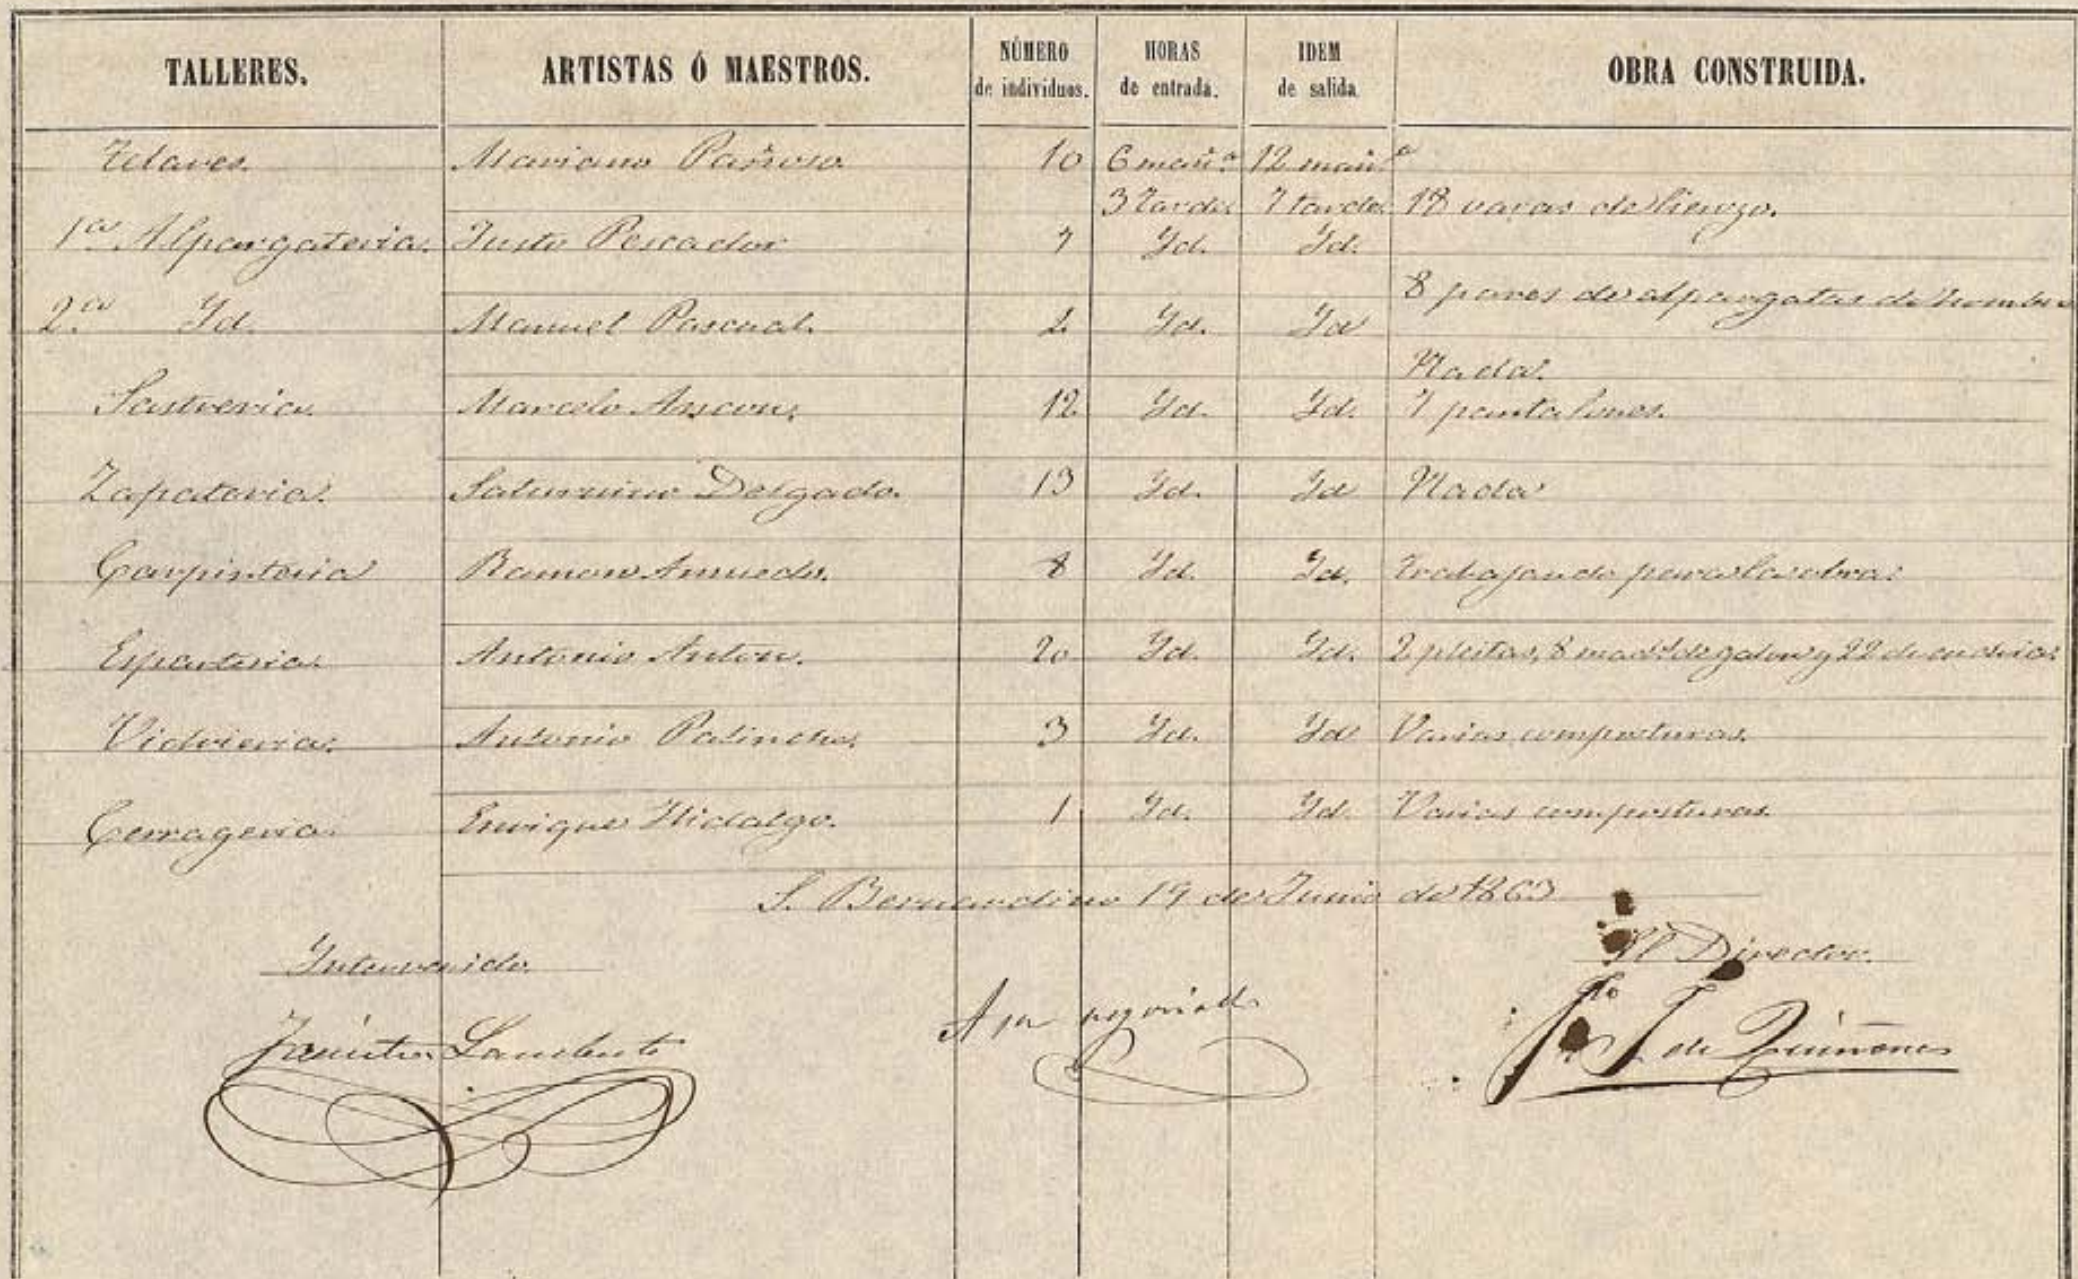 TALLERES. ARTISTAS Ó MAESTROS. NÚMERO de individuos. HORAS de entrada. IDEM de salida OBRA CONSTRUIDA.
Telares. Mariano 10 6 mañ.ª 12 mañ.ª
3 tarde. 7 tarde. 18 varas de lienzo.
1ª Alpargateria. Justo Pescador 7 Id. Id.
8 pares de alpargatas de hombre
2ª Id. Manuel Pascual. 2 Id. Id
Nada.
Sastreria. Marcelo 12 Id. Id. 7 pantalones.
Zapateria. Saturnino Delgado. 13 Id. Id Nada
Carpinteria Ramon 8 Id. Id. Trabajando para las obras
Esparteria. Antonio Anton. 20 Id. Id. 2 pleitas, 8 mad.s de galon y 22 de
Vidrieria. Antonio 3 Id. Id Varias composturas.
Cerrageria. Enrique Hidalgo. 1 Id. Id. Varias composturas.
S. Bernardino 19 de Junio de 1863
Intervenido El Director.
de Quiñones